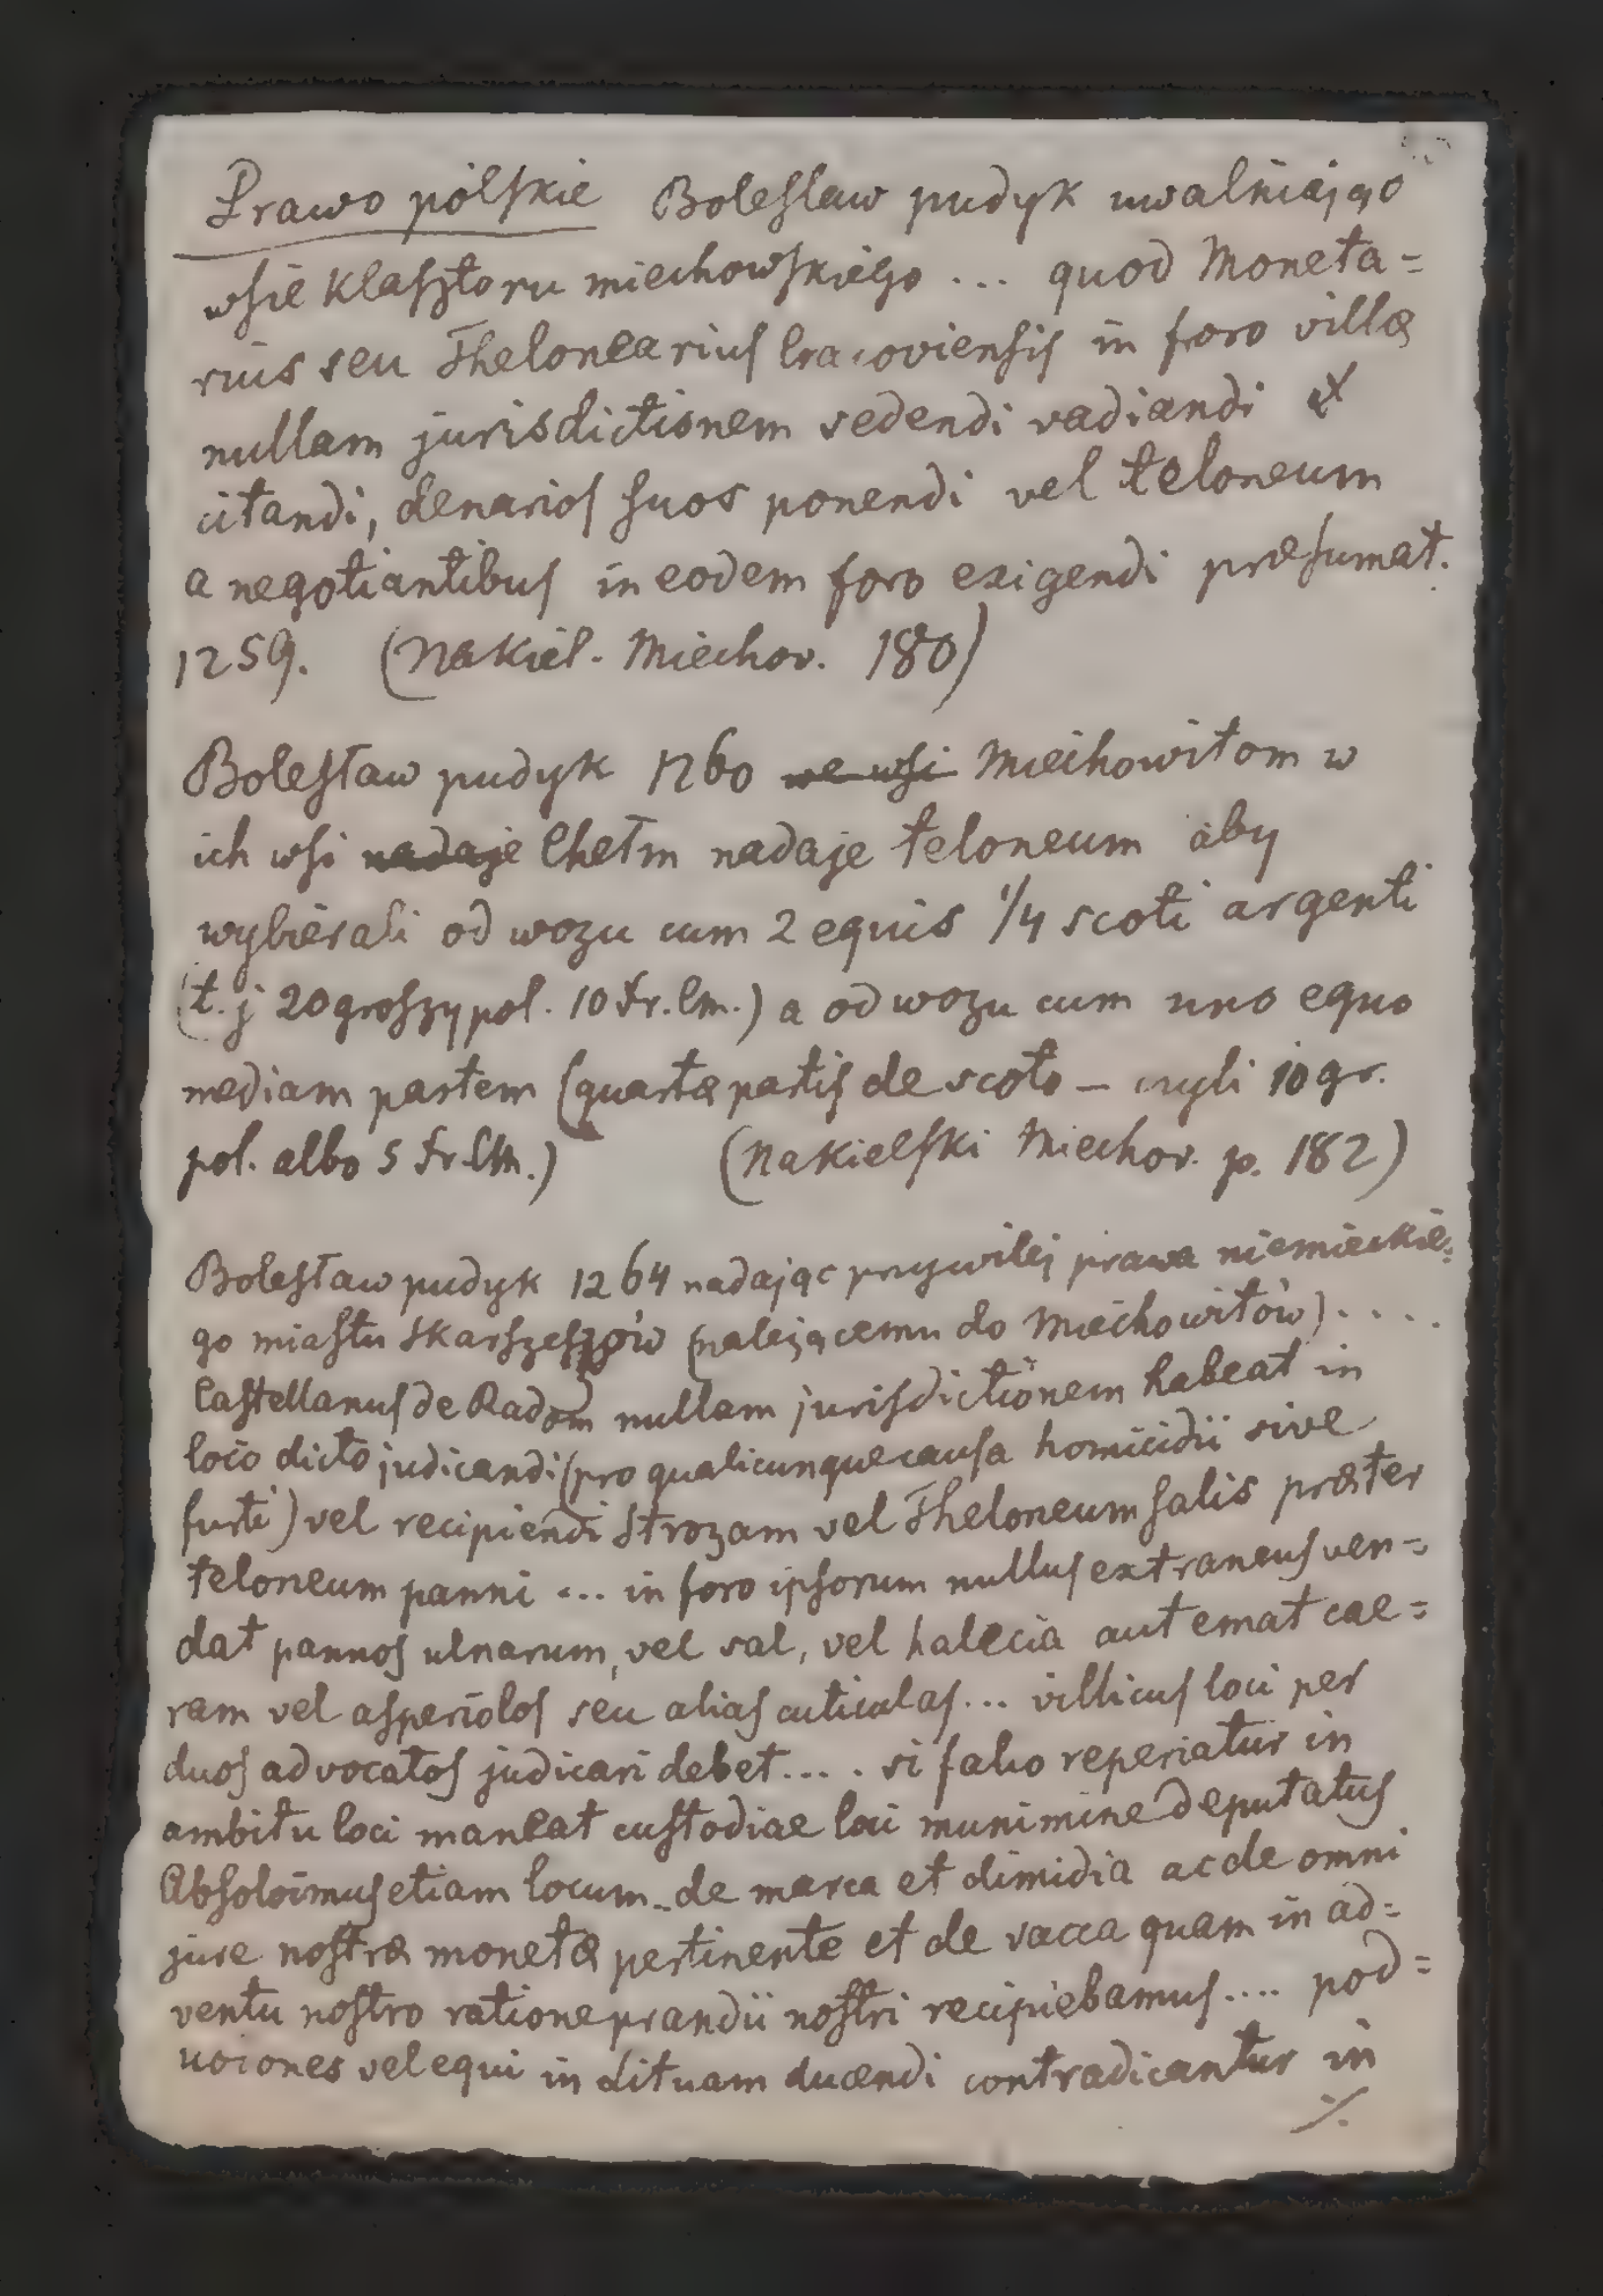 Prawo polskie Bolesław pudyk uwalniając
wsie klasztoru miechowskiego ... quod Moneta=
rius seu Thelonearius Cracoviensis in foro villæ
nullam jurisdictionem sedendi vadiandi et
citandi, denarios suos ponendi vel teloneum
a negotiantibus in eodem foro exigendi præsumat.
1259. (Nakiel. Miechov. 180)
Bolesław pudyk 1260 we wsi Miechowitom w
ich wsi nadaje Chełm nadaje teloneum aby
wybierali od wozu cum 2 equis 1/4 scoti argenti
(t. j 20 groszy pol. 10 kr. Cm.) a od wozu cum uno equo
mediam partem (quartæ partis de scoto — czyli 10 gr.
pol. albo 5 kr. Cm.) (Nakielski Miechov. p. 182)
Bolesław pudyk 1264 nadając przywilej prawa niemieckie=
go miastu Skarszeszów (należącemu do Miechowitów) ....
Castellanus de Radom nullam jurisdictionem habeat in
loco dicto judicandi (pro qualicunque causa homicidii sive
furti) vel recipiendi Strozam vel Theloneum salis præter
teloneum panni ... in foro ipsorum nullus extraneus ven=
dat pannos ulnarum, vel sal, vel halecia aut emat cae=
ram vel asperiolos seu alias cuticulas ... villicus loci per
duos advocatos judicari debet .... si falso reperiatur in
ambitu loci maneat custodiae loci munimine deputatus
Absolvimus etiam locum .. de marca et dimidia ac de omni
jure nostræ monetæ pertinente et de vacca quam in ad=
ventu nostro ratione prandii nostri recipiebamus .... pod=
uociones vel equi in lituam ducendi contradicantur in
./.